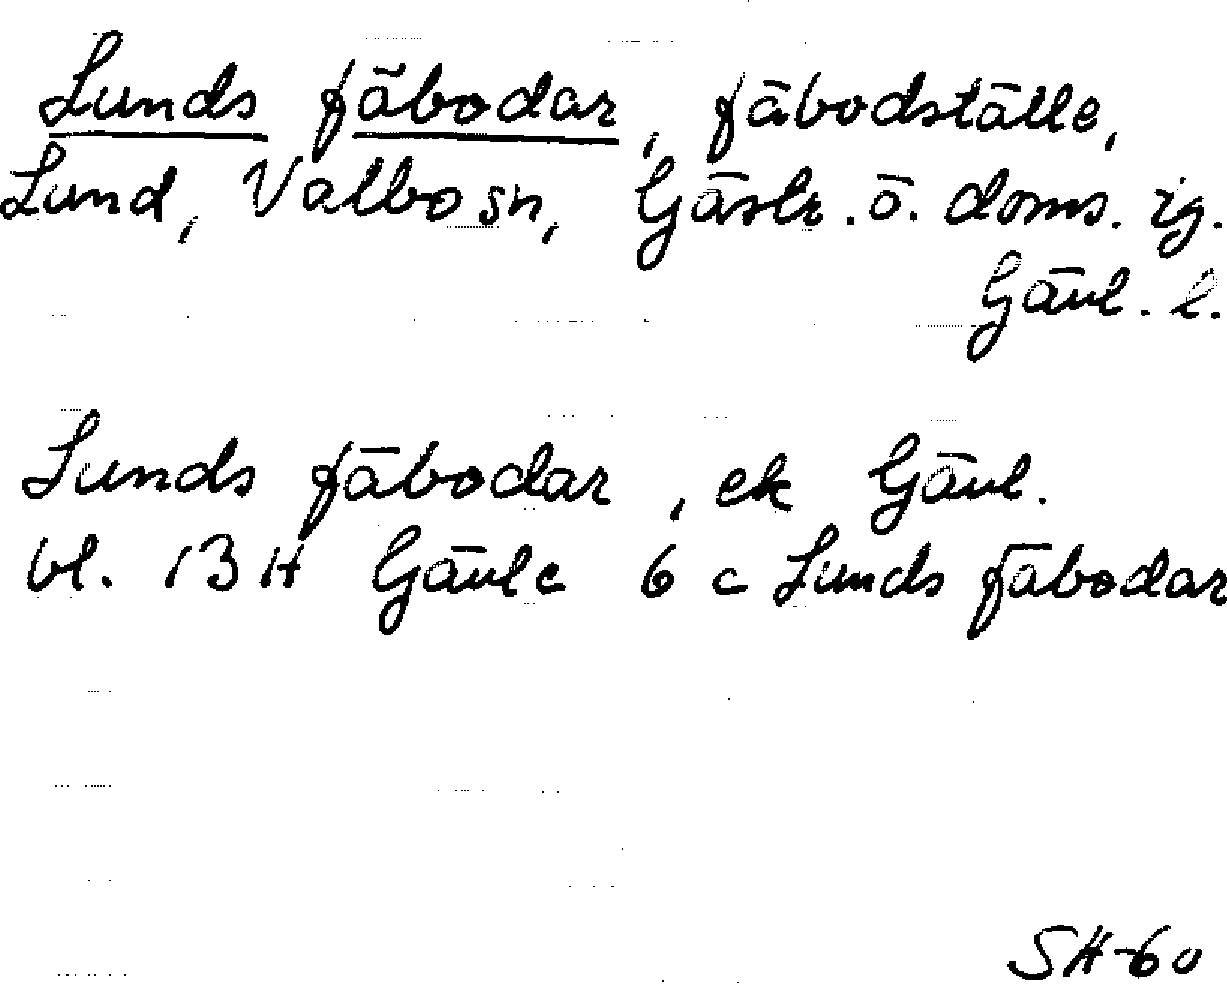 Lunds fäbodar, fäbodställe,
Lund, Valbo sn, Gästr. ö. doms. ig.
Gävl. l.
Lunds fäbodar, ek Gävl.
bl. 13 H Gävle 6 c Lunds fäbodar
SH-60